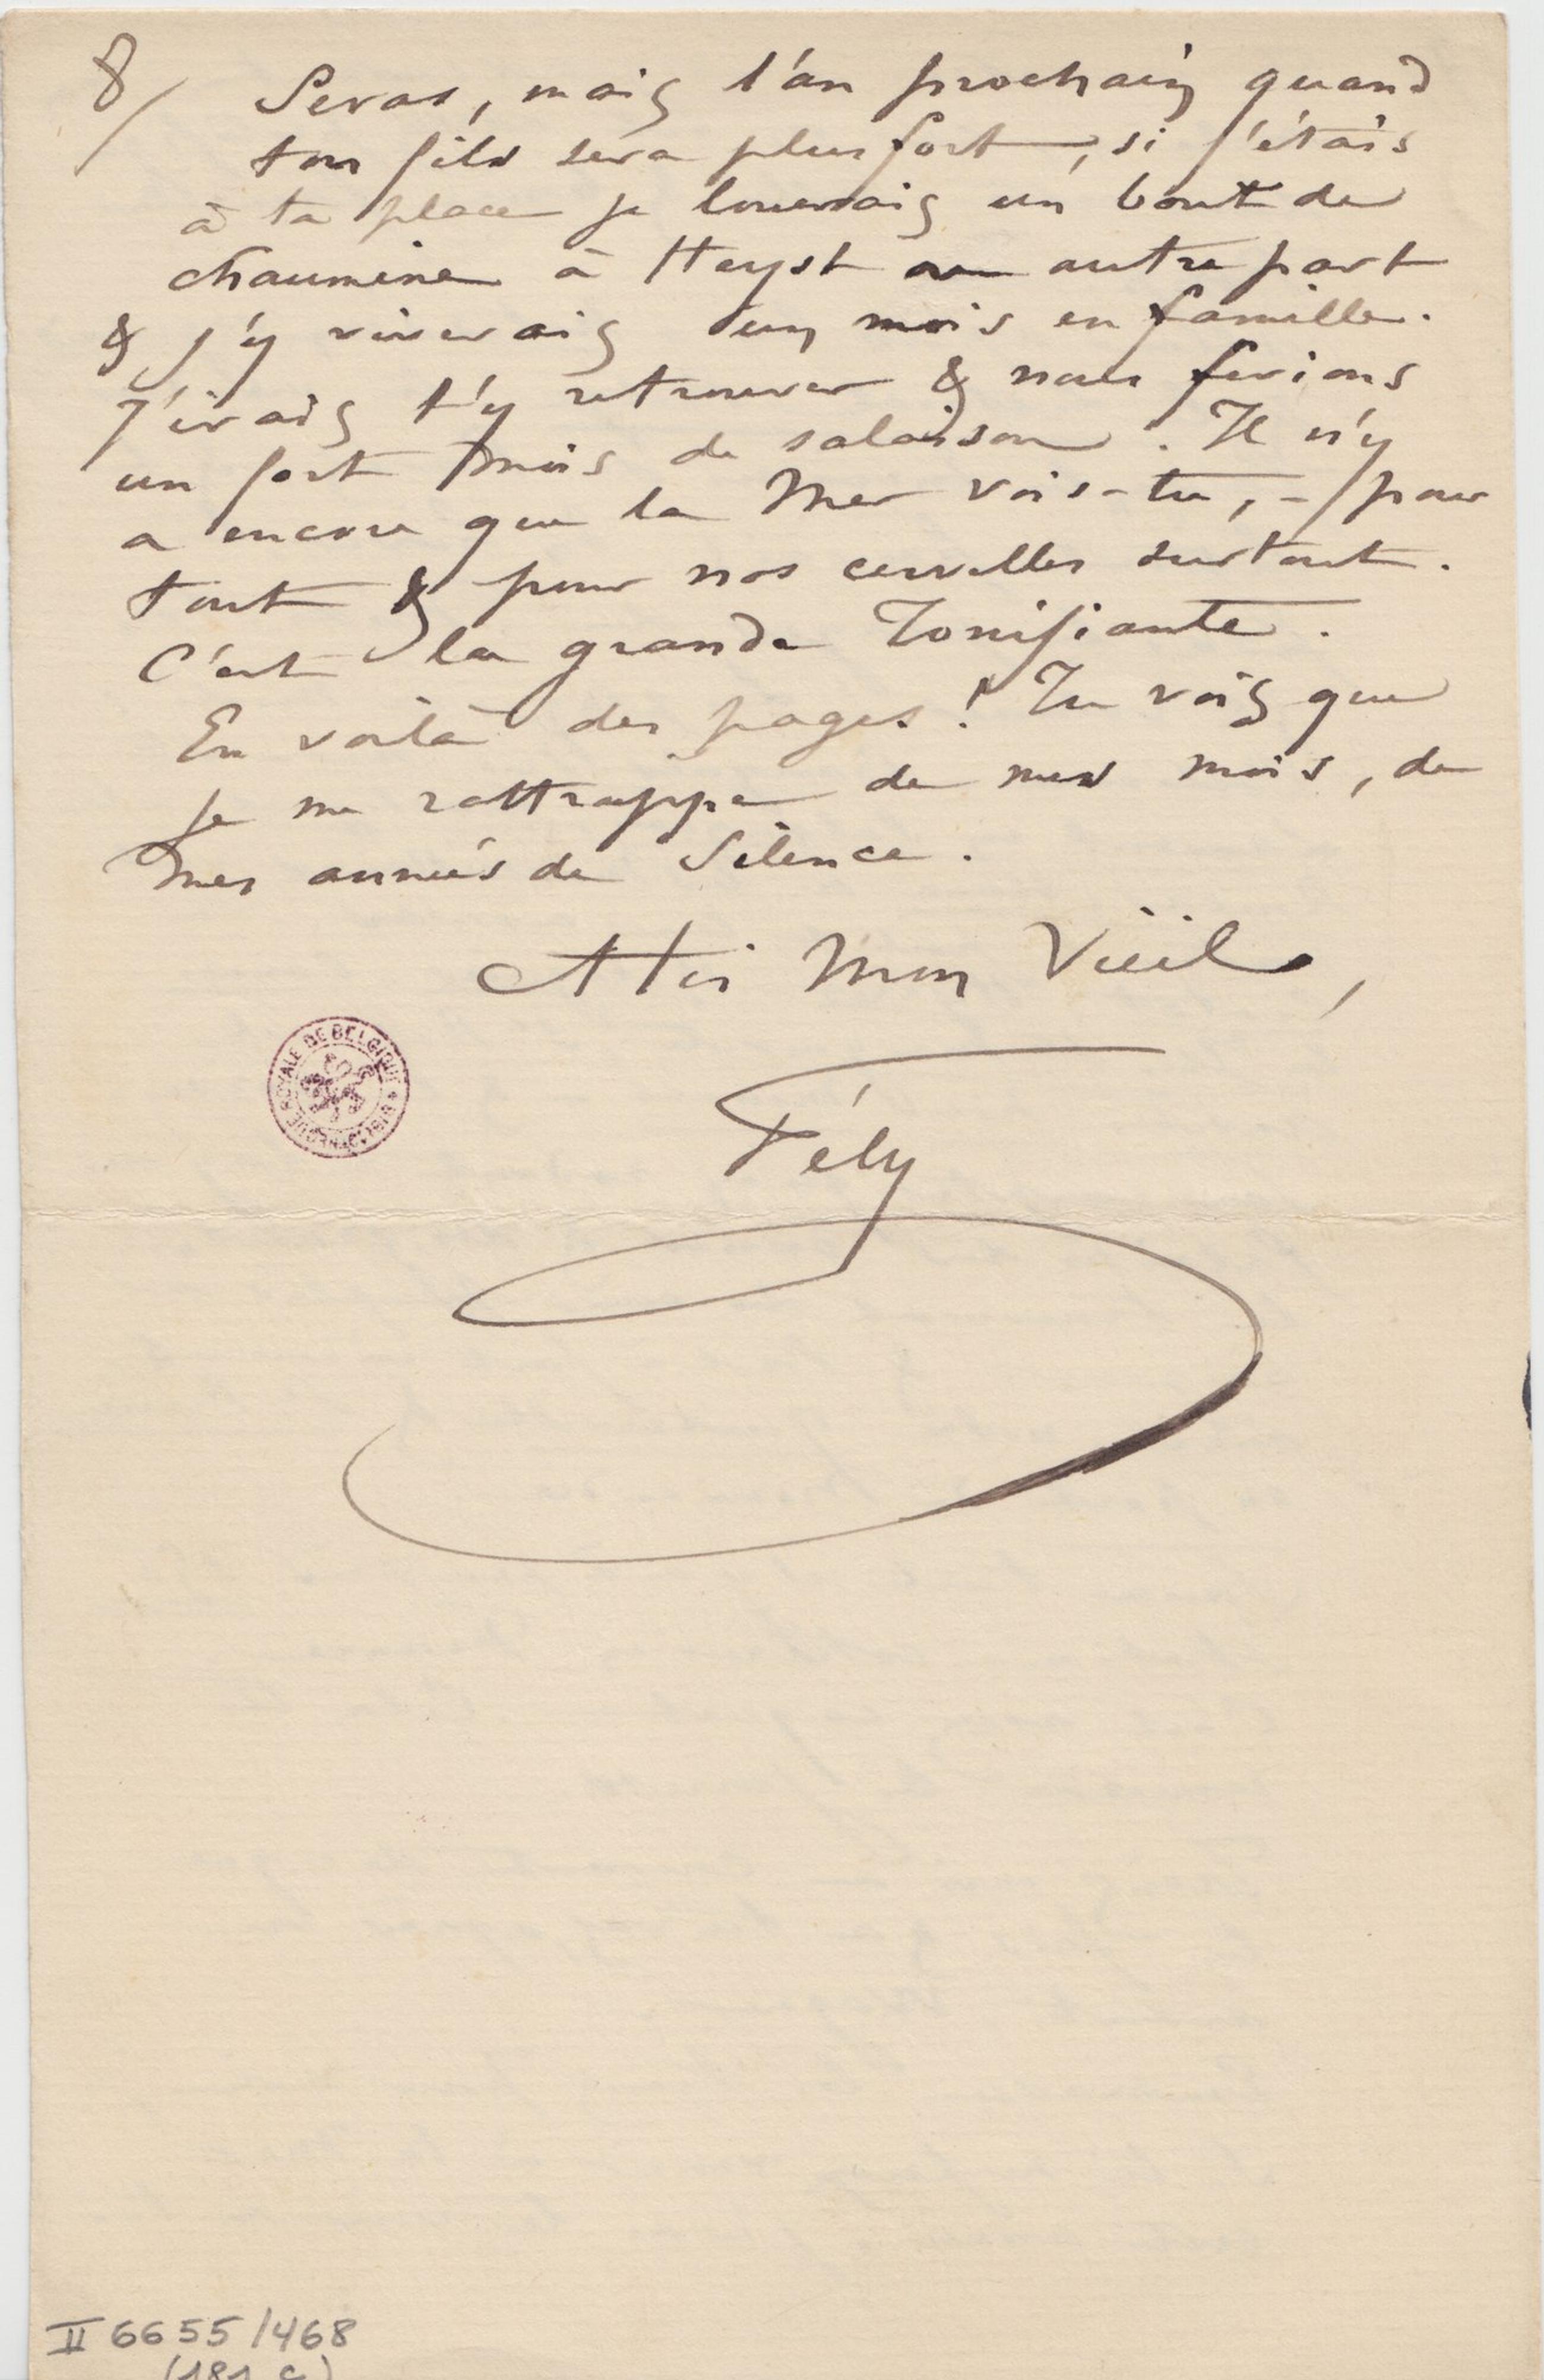 8/ Seras, mais l'an prochain quand
ton fils sera plus fort, si j'étais
à ta place je louerais un bout de
chaumine à Heyst ou autre part
& j'y viverais un mois en famille.
J'irais t'y retrouver & nous ferions
un fort mois de salaison. Il n'y
a encore que la Mer vois-tu, – pour
tout & pour nos cervelles surtout.
C'est la grande Tonifiante.
En voilà des pages! Tu vois que
je me rattrappe de mes mois, de
mes années de Silence.
A toi Mon Vieil,
Fély
BIBLIOTHEQUE ROYALE DE BELGIQUE
II 6655/468
(181 c)